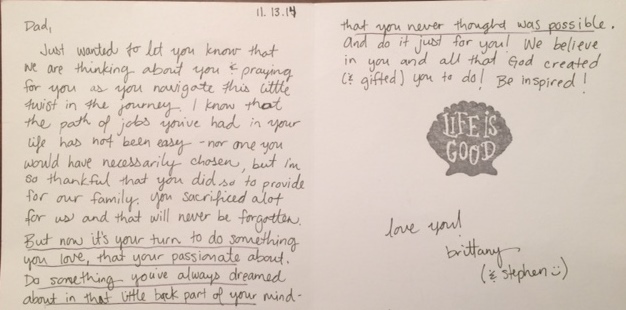 11.13.14
Dad,
Just wanted to let you know that
we are thinking about you & praying
for you as you navigate this little
twist in the journey. I know that
the path of jobs you've had in your
life has not been easy - nor one you
would have necessarily chosen, but i'm
so thankful that you did so to provide
for our family. you sacrificed alot
for us and that will never be forgotten.
But now it's your turn to do something
you love, that your passionate about.
Do something you've always dreamed
about in that little back part of your mind-
that you never thought was possible.
And do it just for you! We believe
in you and all that God created
(& gifted) you to do! Be Inspired!
LIFE IS
GOOD
love you!
brittany
(& stephen :)